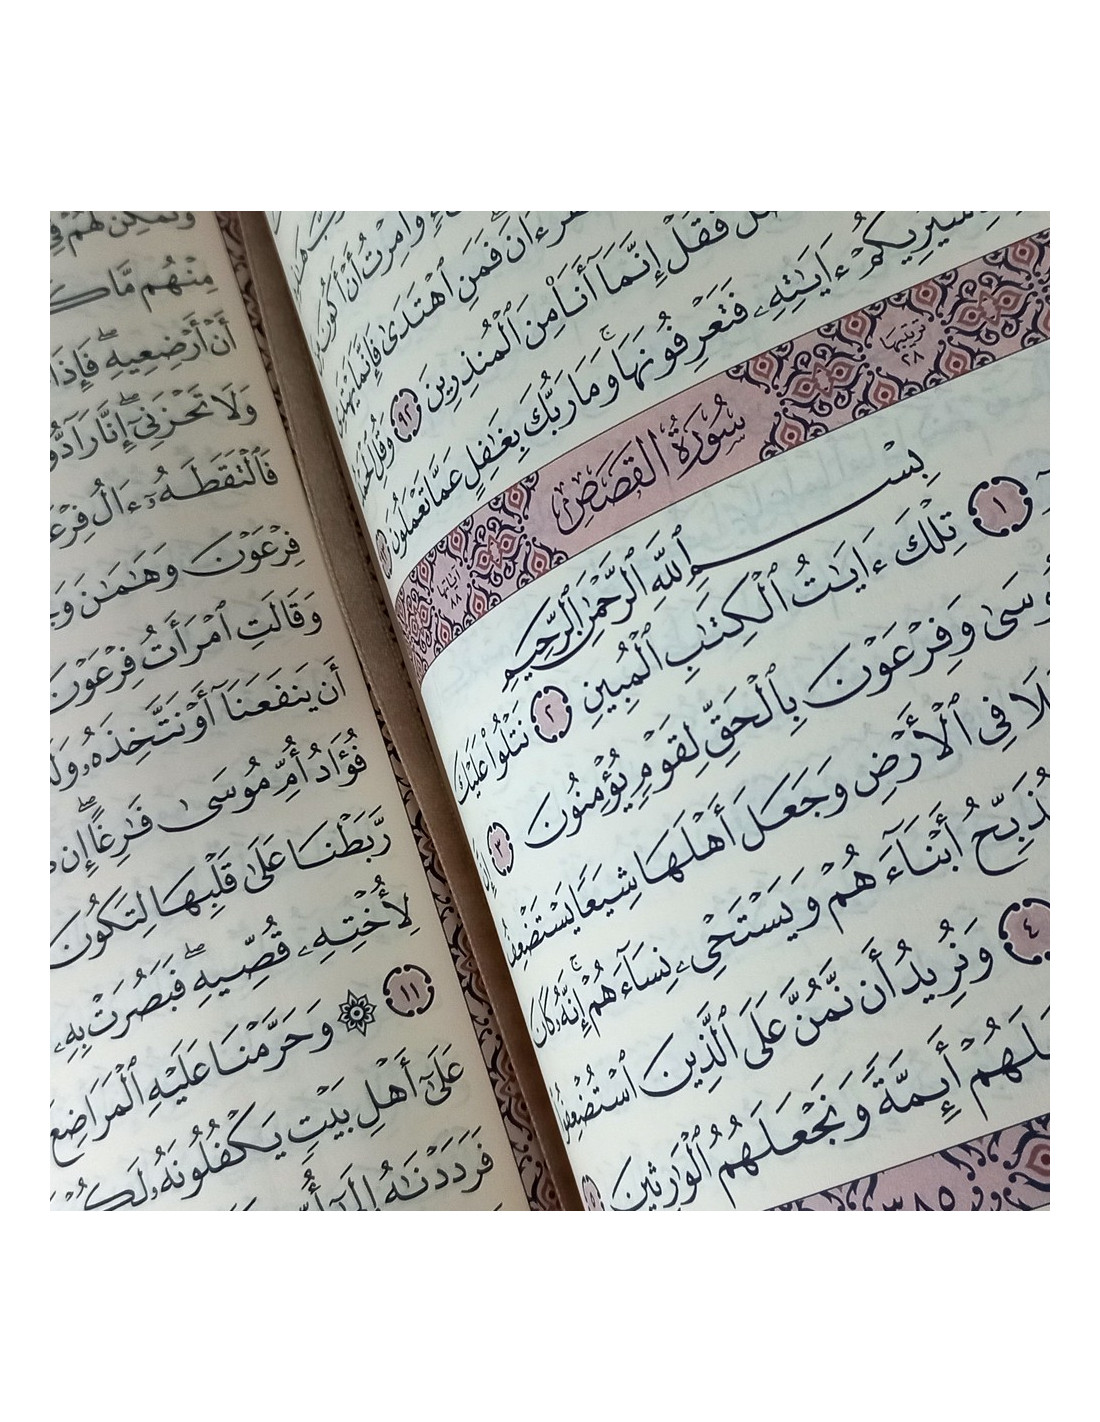 وَأُمِرْتُ أَنْ أَكُونَ
فَمَنِ ٱهْتَدَىٰ فَإِنَّمَا يَهْتَدِى
فَقُلْ إِنَّمَآ أَنَا۠ مِنَ ٱلْمُنذِرِينَ ٩٢ وَقُلِ ٱلْحَمْدُ
سَيُرِيكُمْ ءَايَٰتِهِۦ فَتَعْرِفُونَهَا ۚ وَمَا رَبُّكَ بِغَٰفِلٍ عَمَّا تَعْمَلُونَ ٩٣
ترتيبها ٢٨ سُورَةُ القَصَصِ آياتها ٨٨
بِسْمِ ٱللَّهِ ٱلرَّحْمَٰنِ ٱلرَّحِيمِ
١ تِلْكَ ءَايَٰتُ ٱلْكِتَٰبِ ٱلْمُبِينِ ٢ نَتْلُوا۟ عَلَيْكَ
وَفِرْعَوْنَ بِٱلْحَقِّ لِقَوْمٍ يُؤْمِنُونَ ٣ إِنَّ
فِى ٱلْأَرْضِ وَجَعَلَ أَهْلَهَا شِيَعًا يَسْتَضْعِفُ
يُذَبِّحُ أَبْنَآءَهُمْ وَيَسْتَحْىِۦ نِسَآءَهُمْ ۚ إِنَّهُۥ كَانَ
٤ وَنُرِيدُ أَن نَّمُنَّ عَلَى ٱلَّذِينَ ٱسْتُضْعِفُوا۟
أَئِمَّةً وَنَجْعَلَهُمُ ٱلْوَٰرِثِينَ ٥
٣٨٥
وَنُمَكِّنَ لَهُمْ فِى
مِنْهُم مَّا
أَنْ أَرْضِعِيهِ ۖ فَإِذَا
وَلَا تَحْزَنِىٓ ۖ إِنَّا رَآدُّوهُ
فَٱلْتَقَطَهُۥٓ ءَالُ فِرْعَوْنَ
فِرْعَوْنَ وَهَٰمَٰنَ
وَقَالَتِ ٱمْرَأَتُ فِرْعَوْنَ
أَن يَنفَعَنَآ أَوْ نَتَّخِذَهُۥ
فُؤَادُ أُمِّ مُوسَىٰ فَٰرِغًا ۖ إِن
رَّبَطْنَا عَلَىٰ قَلْبِهَا لِتَكُونَ
لِأُخْتِهِۦ قُصِّيهِ ۖ فَبَصُرَتْ بِهِۦ
١١ وَحَرَّمْنَا عَلَيْهِ ٱلْمَرَاضِعَ
عَلَىٰٓ أَهْلِ بَيْتٍ يَكْفُلُونَهُۥ لَكُمْ
فَرَدَدْنَٰهُ إِلَىٰٓ أُمِّهِۦ